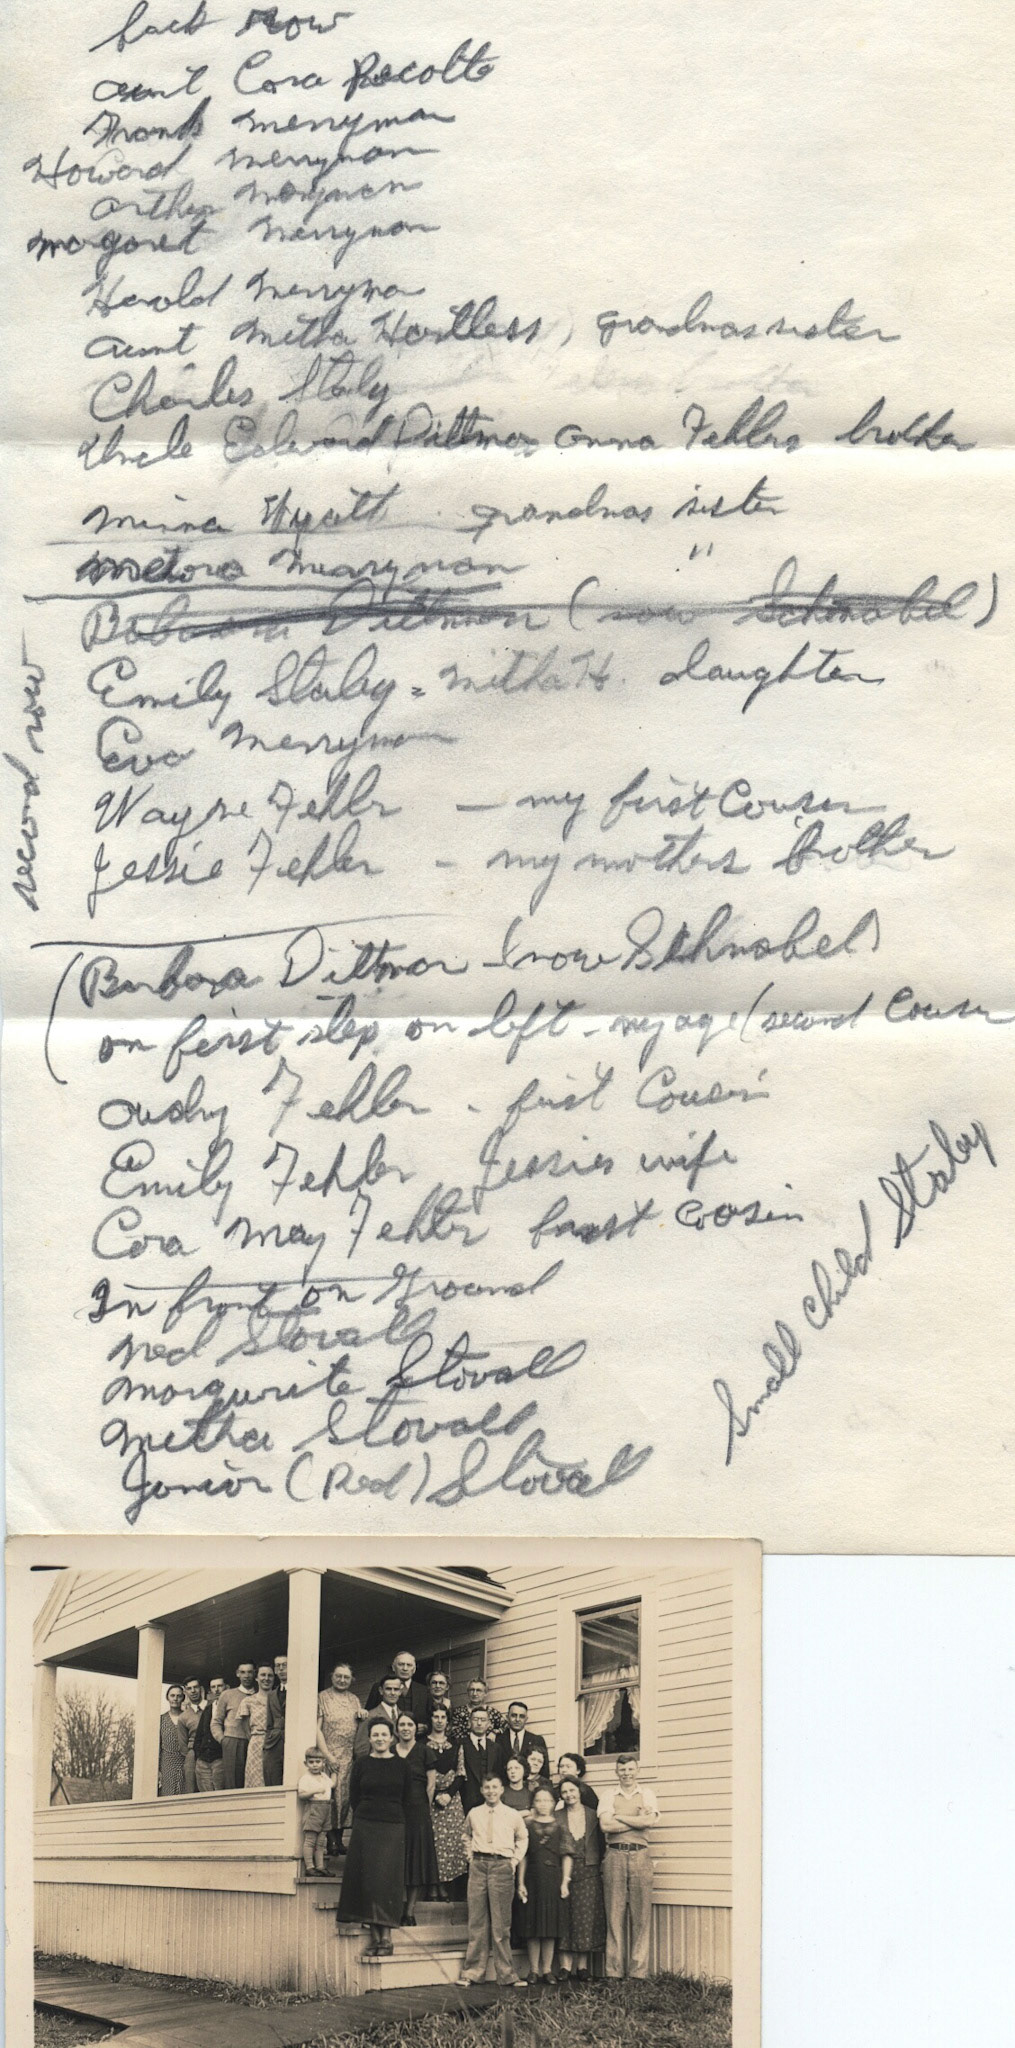 back row
aunt Cora
Frank Merryman
Howard Merryman
arther Merryman
Margaret Merryman
Harold Merryman
aunt Mitha Hartless, grandmas sister
Charles Staley
Uncle Edward Dittmar anna Fehlrs brother
Minna Hyatt. grandmas sister
Merryman "
Dittmar (now Schnabel)
second row
Emily Staley = Mitha H. daughter
Eva Merryman
Wayne Fehlr - my first Couser
Jessie Fehler - my mothers brother
(Barbara Dittmar - (now Schnabel)
on first step on left - my age (second Couser
audry Fehler - first Cousin
Emily Fehler Jessies wife
Cora May Fehler first cousin
In front on Ground
Ned Stovall
Morgurite Stovall
Metha Stovall
Junior (Red) Stovall
Small child Staley